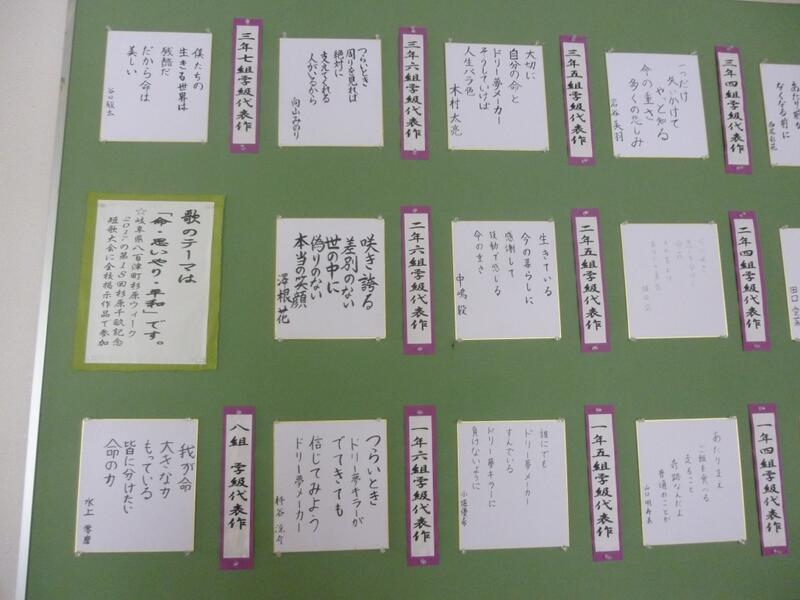 三年七組学級代表作
僕たちの
生きる世界は
残酷だ
だから命は
美しい
三年六組学級代表作
つらいとき
周りを見れば
絶対に
支えてくれる
人がいるから
向山みのり
三年五組学級代表作
大切に
自分の命と
ドリー夢メーカー
そうしていけば
人生バラ色
木村太亮
三年四組学級代表作
一つだけ
失いかけて
やっと知る
命の重さ
多くの悲しみ
岩谷美羽
あたり前が
なくなる前に
歌のテーマは
「命・思いやり・平和」です。
☆岐阜県八百津町杉原ウィーク
短歌大会に全校掲示作品で参加
二年六組学級代表作
咲き誇る
差別のない
世の中に
偽りのない
本当の笑顔
澤根花
二年五組学級代表作
生きている
今の暮らしに
感謝して
鼓動で感じる
命の重さ
中嶋毅
二年四組学級代表作
八組 学級代表作
我が命
大きな力
もっている
皆に分けたい
命の力
水上
一年六組学級代表作
つらいとき
ドリー夢キラーが
でてきても
信じてみよう
ドリー夢メーカー
一年五組学級代表作
誰にでも
ドリー夢メーカー
すんでいる
ドリー夢キラーに
負けないように
一年四組学級代表作
あたりまえ
ご飯を食べる
走ること
奇跡なんだよ
普通のことが